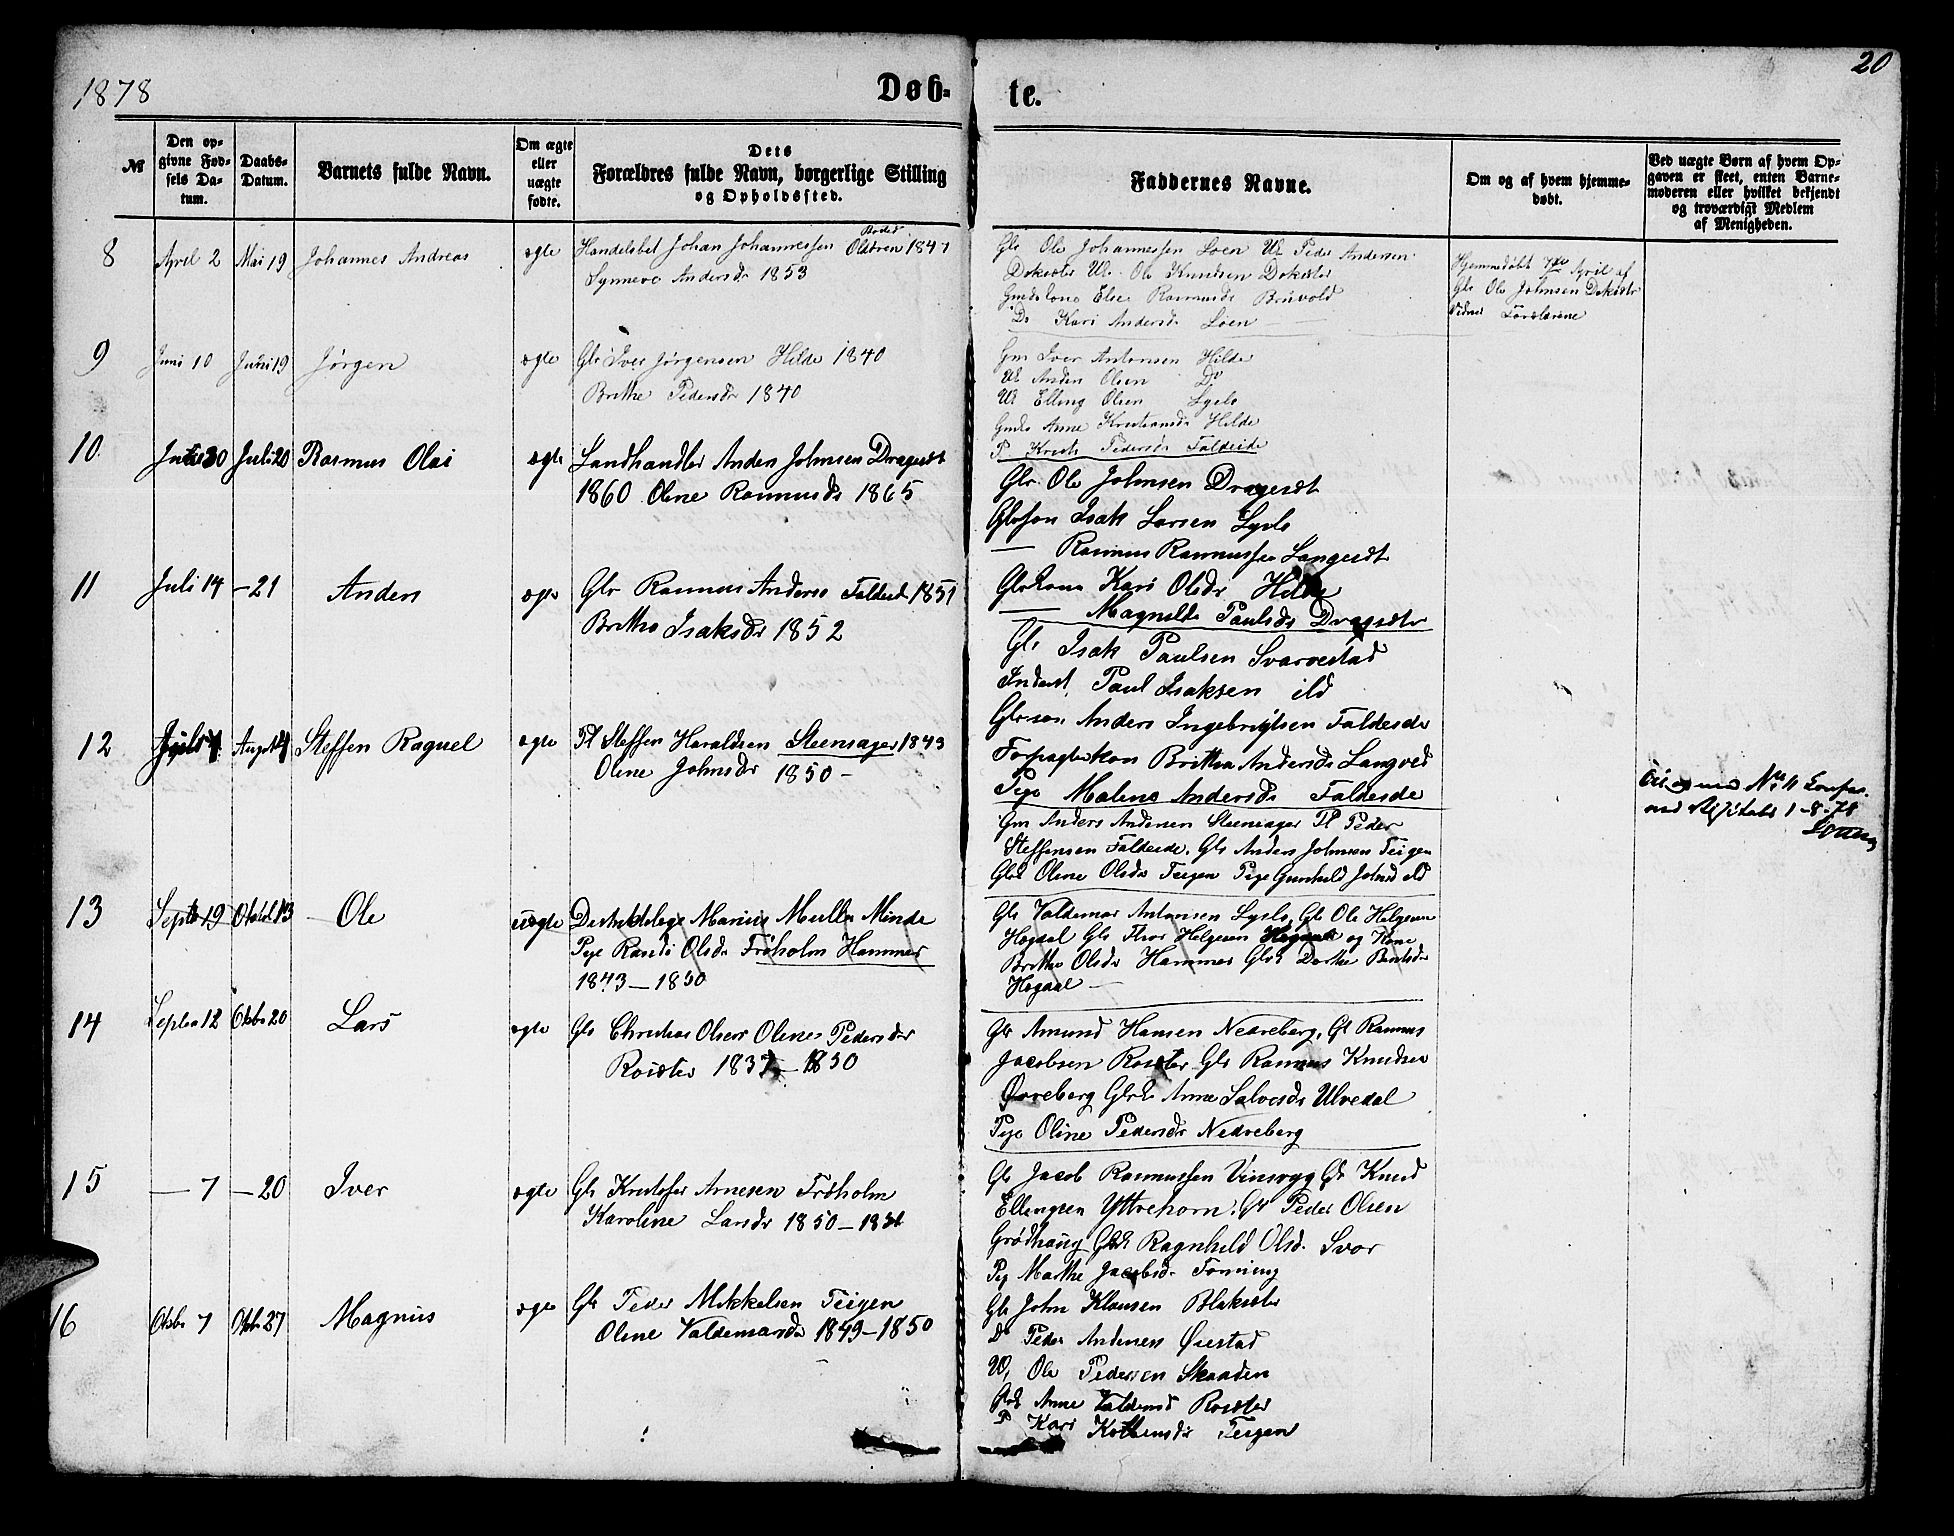 1878
Døb-
te.
20
№
Den op-
givne Fød-
sels Da-
tum.
Daabs-
Datum.
Barnets fulde Navn.
Om ægte
eller
uægte
fødte.
Dets
Forældres fulde Navn, borgerlige Stilling
og Opholdssted.
Faddernes Navne.
Om og af hvem hjemme-
døbt.
Ved uægte Børn af hvem Op-
gaven er skeet, enten Barne-
moderen eller hvilket bekjendt
og troværdigt Medlem
af Menigheden.
8 April 2 Mai 19 Johannes Andreas ægte Handelsbet Johan Johannessen Oldøren 1847
Synneve Andersdr 1853
Gbr Ole Johannessen Loen Uk Peder Andersen
Dokester Uk Ole Knudsen Dokester
Grdkone Else Rasmusdr Bruvold
Do Kari Andersdr Loen
Hjemmedøbt 7de April af
Gbr Ole Johnsen Dokester
9 Juni 10 Juni 19 Jørgen ægte Gbr Iver Jørgensen Hilde 1840
Brithe Pedersdr 1840
Gm Iver Antonsen Hilde
Uk Anders Olsen Do
Uk Elling Olsen Lyslo
Anne Kristiansdr Hilde
P Pedersdr Faldeide
10 Juli 20 Rasmus Olai ægte Landhandler Anders Johnsen Dragesdt
1860 Oline Rasmusdr 1865
Gbr Ole Johnsen Dragesdt
Gbrson Isak Larsen Lyslo
— Rasmus Rasmussen Langesdt
Gbrkone Kari Olsdr Hilde
— Magnilde Paulsdr Dragesdtr
11 Juli 14 - 21 Anders ægte Gbr Rasmus Anderse Faldeide 1851
Brithe Isaksdr 1852
Gbr Isak Paulsen Svarvestad
Paul Isaksen ibd
Gbrson Anders Ingebrigtsen Faldeide
Forpagterkon Brithe Andersdr Langved
Pige Malene Andersdr Faldeide
12 August 4 Steffen Raguel ægte Pl Steffen Haraldsen Steensager 1843
Oline Johnsdr 1850 -
Gm Anders Andersen Steensager Pl Peder
Steffensen Faldeide. Gbr Anders Johnsen Teigen
Gbrk Oline Olsdr Teigen Pige Gunhild Johnsd ibd
13 Septb 19 Oktob 13 Ole uægte Marius Muller Minde
Pige Randi Olsdr Frøholm Hammer
1843 - 1850
Gbr Valdemar Antonsen Lyslo, Gbr Ole Helgesen
Hogaal Gbr Thor Helgesen Hogaal og Kone
Brithe Olsdr Hammer Gbrk Dorthe Bentsdr
Hogaal -
14 Septbr 12 Oktbr 20 Lars ægte Gbr Christian Olsen Oline Pedersdr
Roister 1837 - 1850
Gbr Amund Hansen Nedreberg, Gbr Rasmus
Jacobsen Roister Gbr Rasmus Knudsen
Øvreberg Gbrk Anne Salvesdr Ulvedal
Pige Oline Pedersdr Nedreberg
15 - 7 - 20 Iver ægte Gbr Kristofer Arnesen Frøholm
Karoline Larsdr 1850 - 1851
Gbr Jacob Rasmussen Vinsvyg Gbr Knud
Ellingsen Yttrehorn. Gbr Peder Olsen
Grødhaug Gbrk Ragnhild Olsd. Svor
Pig Marthe Jacobsdr
16 Oktbr 7 Oktbr 27 Magnus ægte Gbr Peder Mikkelsen Teigen
Oline Valdemarsdr 1849 - 1850
Gbr John Klausen Blaksæter
Do Peder Andersen Øvrestad
Uk Ole Pedersen Skaaden
Anne Valdemsd Roister
P Kari Teigen